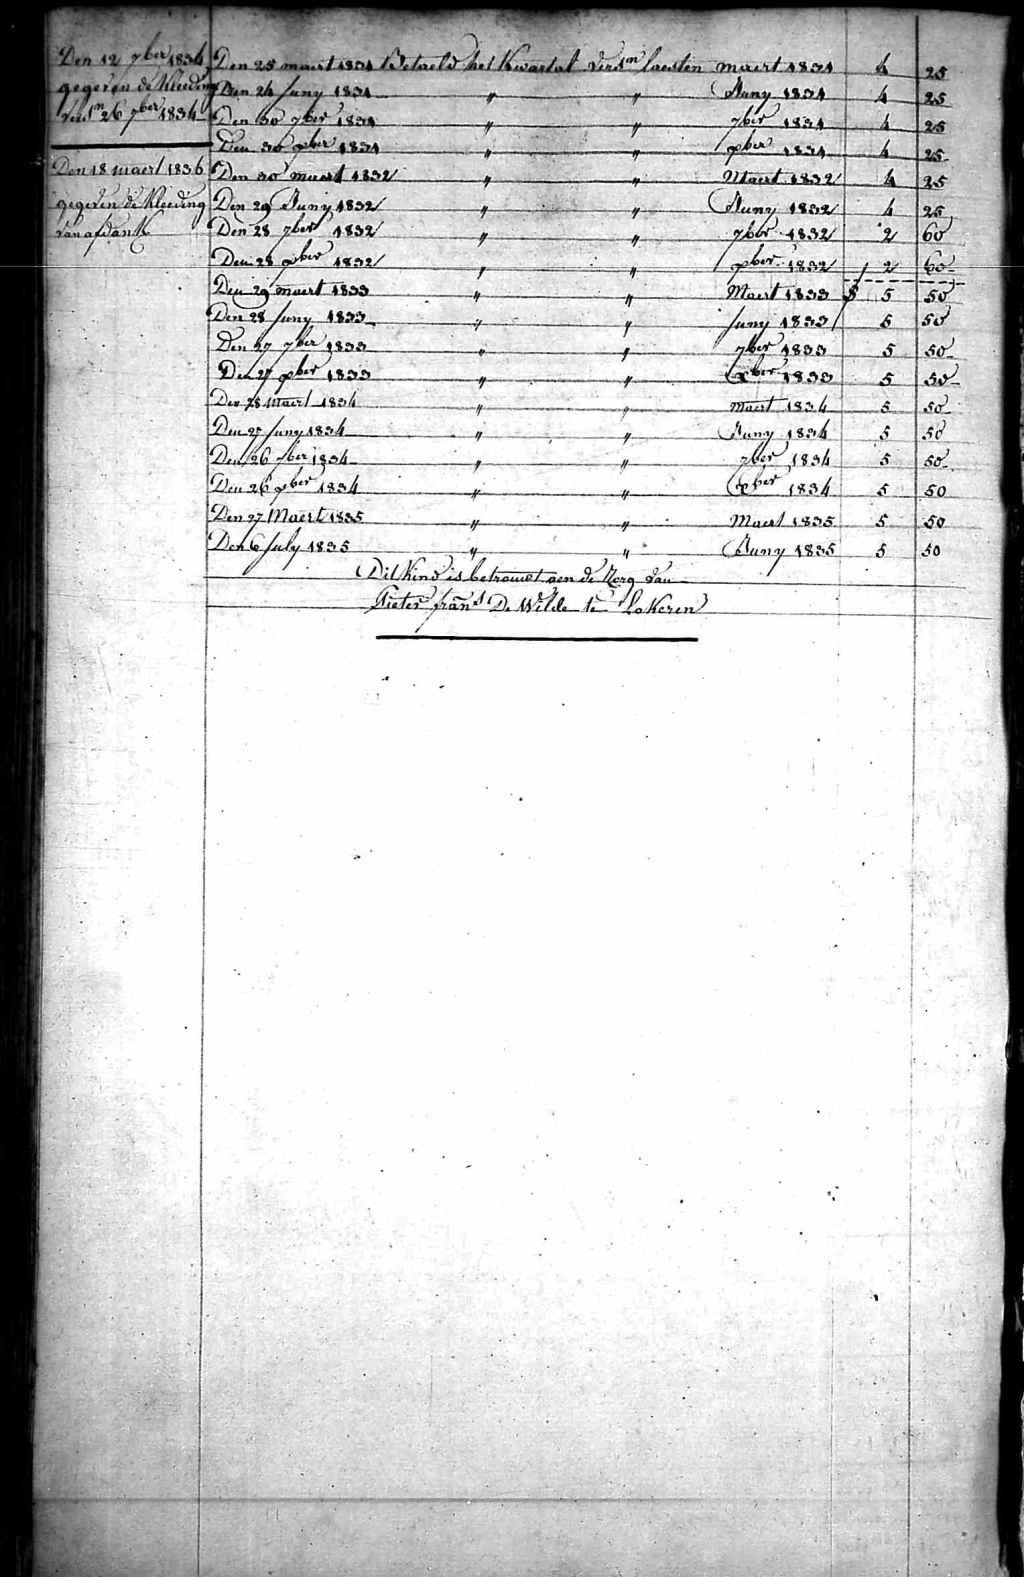 Den 12 7ber 1834
gegeven de Kleeding
26 7ber 1834
Den 18 maert 1836
gegeven de Kleeding
van afdank
Den 25 maert 1831 Betaeld het Kwartal versn laesten maert 1831 4 25
Den 24 Juny 1831 " " Juny 1831 4 25
Den 30 7ber 1831 " " 7ber 1831 4 25
Den 30 xber 1831 " " xber 1831 4 25
Den 30 maert 1832 " " Maert 1832 4 25
Den 29 Juny 1832 " " Juny 1832 4 25
Den 28 7ber 1832 " " 7ber 1832 2 60
Den 28 xber 1832 " " xber 1832 2 60
Den 29 maert 1833 " " Maert 1833 5 50
Den 28 Juny 1833 " " Juny 1833 5 50
Den 27 7ber 1833 " " 7ber 1833 5 50
Den 27 xber 1833 " " xber 1833 5 50
Den 28 Maert 1834 " " Maert 1834 5 50
Den 27 Juny 1834 " " Juny 1834 5 50
Den 26 7ber 1834 " " 7ber 1834 5 50
Den 26 xber 1834 " " xber 1834 5 50
Den 27 Maert 1835 " " Maert 1835 5 50
Den 6 July 1835 " " Juny 1835 5 50
Dit Kind is betrouwt aen de Zorg van
Pieter frans De Wilde te Lokeren